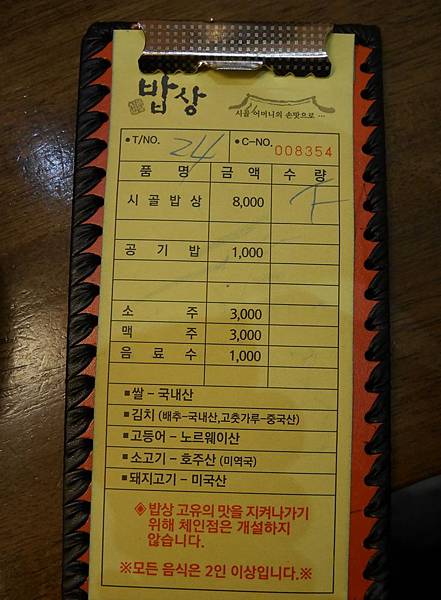 밥상
시골 어머니의 손맛으로 …
• T/NO. 24 • C-NO. 008354
품 명 금 액 수 량
시 골 밥 상 8,000
공 기 밥 1,000
소 주 3,000
맥 주 3,000
음 료 수 1,000
■ 쌀 – 국내산
■ 김치 (배추-국내산,고춧가루-중국산)
■ 고등어 – 노르웨이산
■ 소고기 – 호주산 (미역국)
■ 돼지고기 – 미국산
◈ 밥상 고유의 맛을 지켜나가기
위해 체인점은 개설하지
않습니다.
※모든 음식은 2인 이상입니다.※